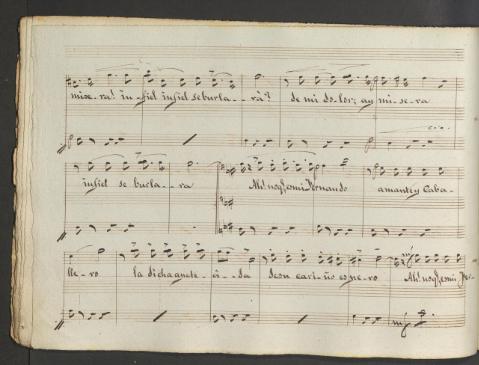 mise-ra! infiel infiel se burla--rà? de mi do-lor; ay mi-se-ra
infiel se burla--ra Ah! no q.e es mi Fernando amante y Caba-
lle-ro la dicha que te--ì-da deson cariño espe-ro Ah! no q.e es mi Fer-